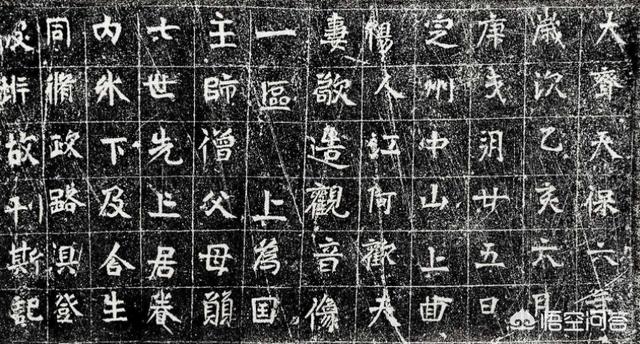 大齊天保六年
歲次乙亥六月
庚戌朔廿五日
定州中山上曲
楊人江阿歡夫
妻歌造觀音像
一區上為国
主師僧父母願
七世先亡居眷
内外下及含生
同脩政路俱登
彼岸故刊斯記
悟空问答